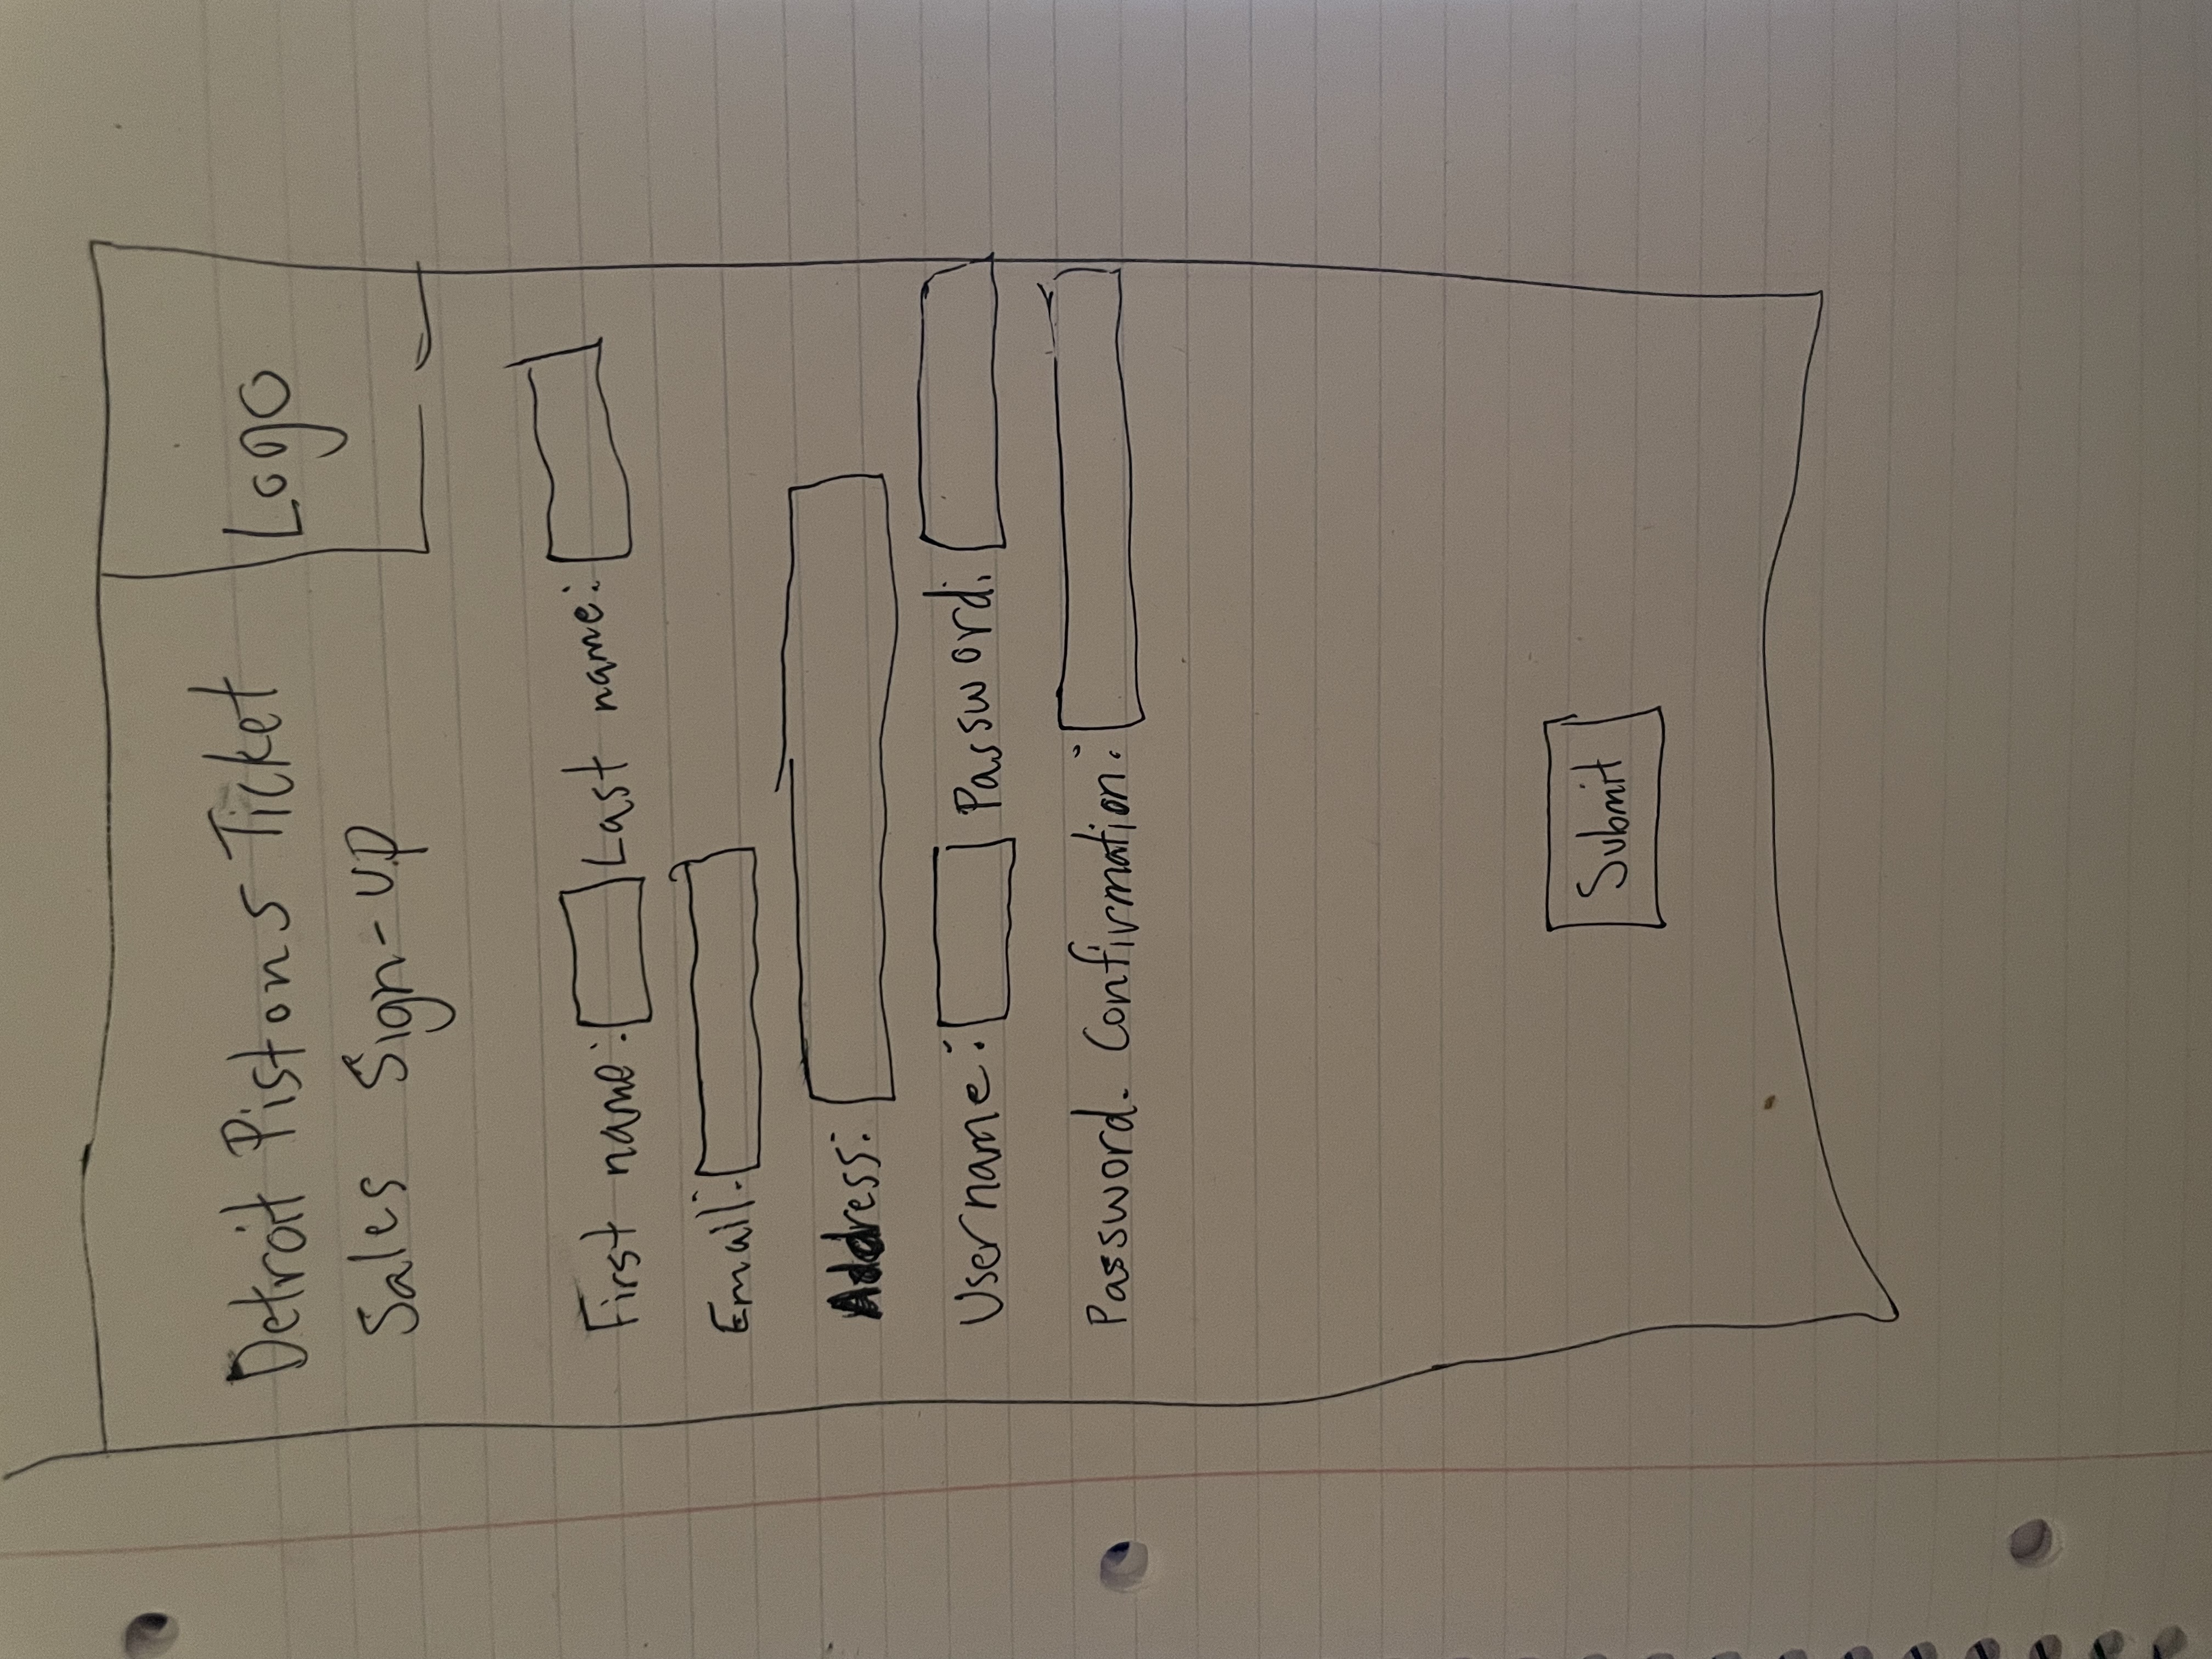 Detroit Pistons Ticket Logo
Sales Sign-up
First name: Last name:
Email:
Address:
Username: Password:
Password. Confirmation:
Submit